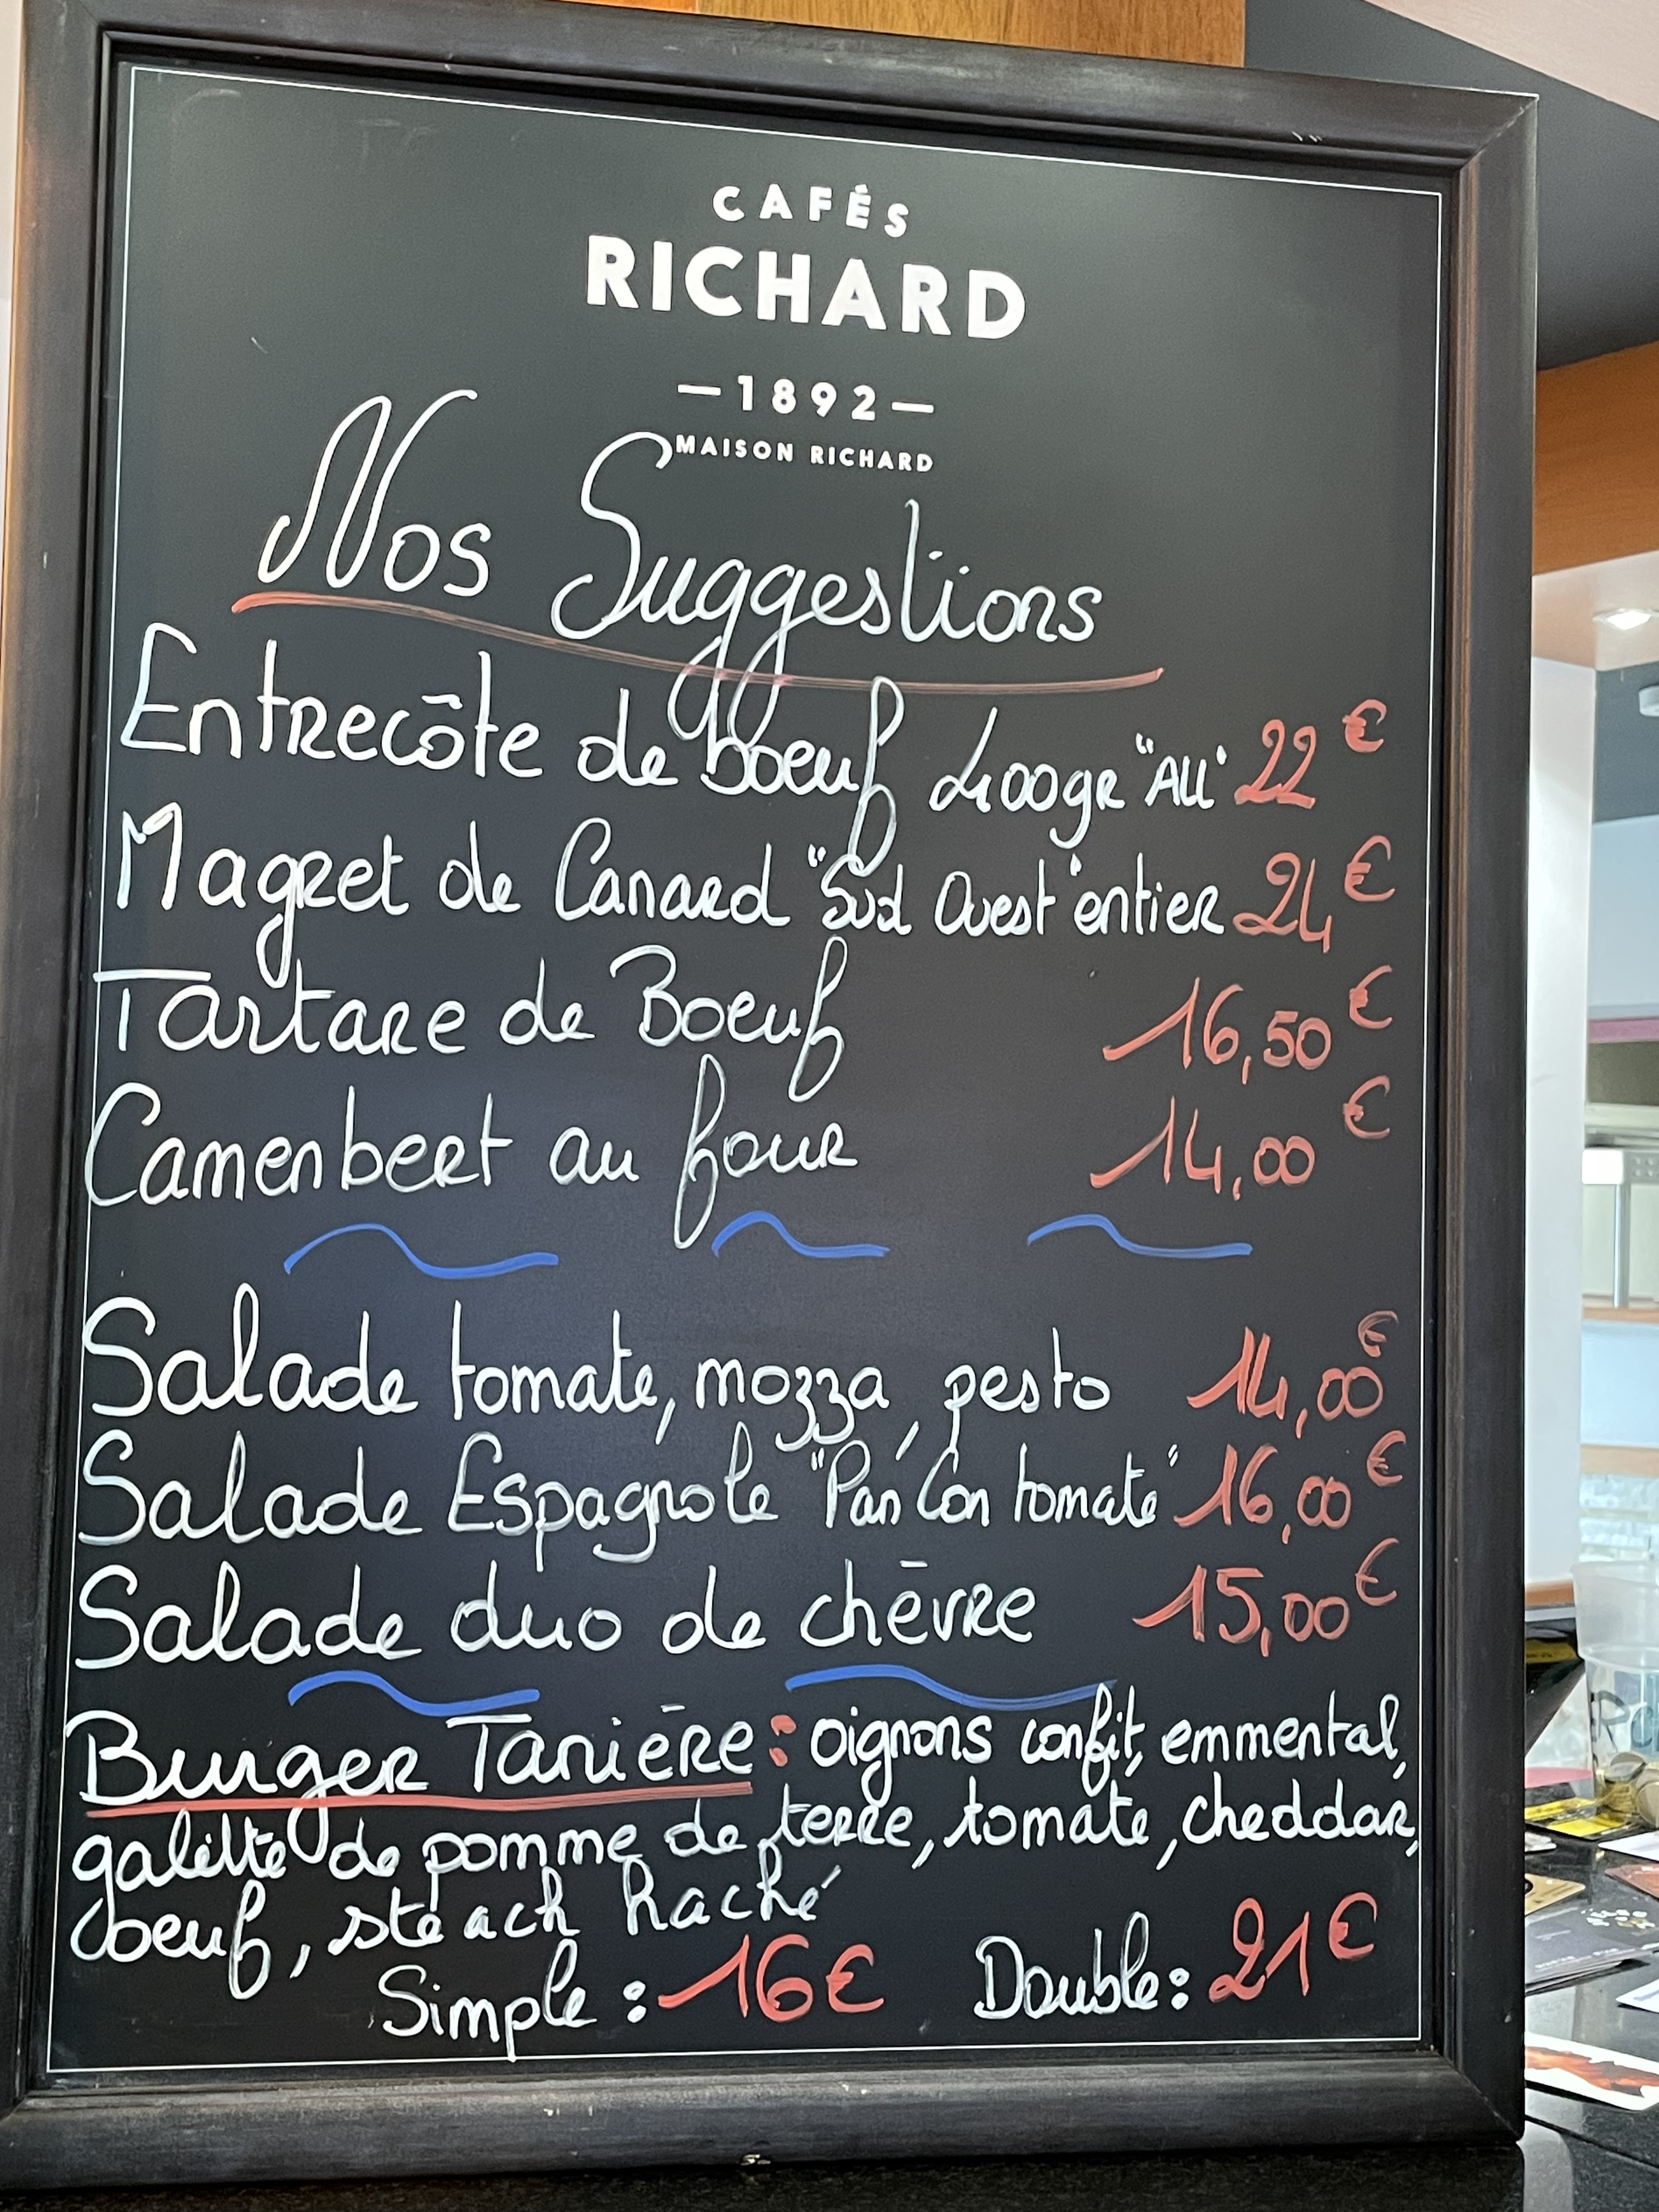 CAFÉS
RICHARD
—1892—
MAISON RICHARD
Nos Suggestions
Entrecôte de boeuf 400gr "All" 22€
Magret de Canard "Sud Ouest" entier 24€
Tartare de Boeuf 16,50€
Camenbert au four 14,00€
Salade tomate, mozza, pesto 14,00€
Salade Espagnole "Pan Con tomate" 16,00€
Salade duo de chèvre 15,00€
Burger Tanière : oignons confit, emmental,
galette de pomme de terre, tomate, cheddar,
boeuf, steach haché
Simple : 16€ Double : 21€